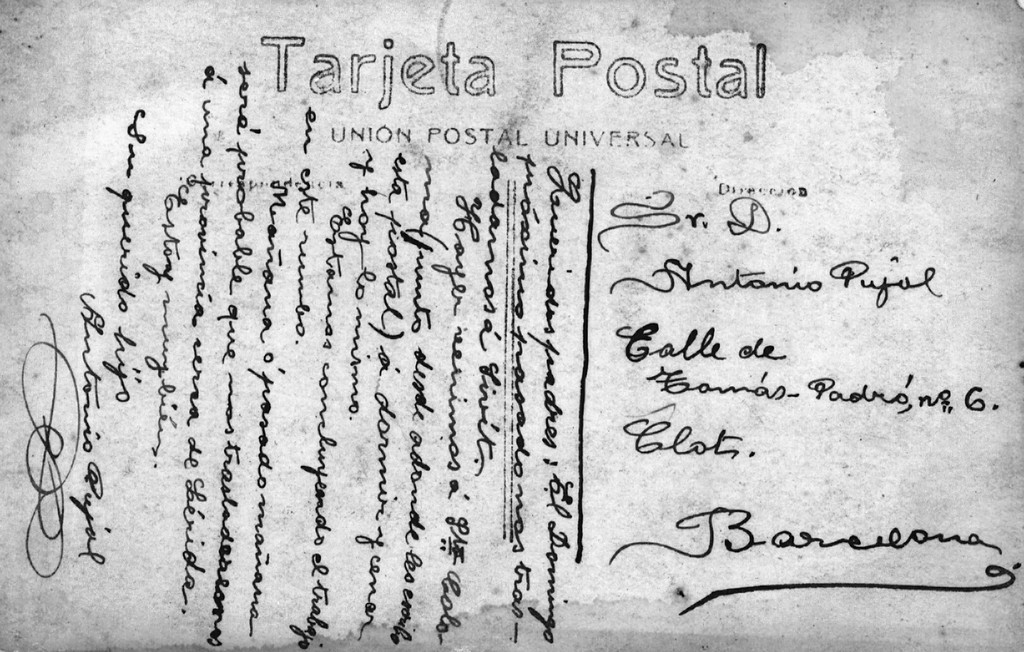 Tarjeta Postal
UNIÓN POSTAL UNIVERSAL
Correspondencia
Dirección
Queridos padres; El Domingo
próximo pasado nos tras-
ladamos á
Hayer venimos á Sta Colo
ma (punto desde adonde les escribo
esta postal) á dormir y cenar
y hoy lo mismo.
Estamos concluyendo el trabajo
en este rumbo.
Mañana ó pasado mañana
será probable que nos trasladaremos
á una provincia cerca de Lérida.
Estoy muy bién.
Su querido hijo
Antonio Pujol
Sr. D.
Antonio Pujol
Calle de
Tomás-Padró, nº 6.
Clot.
Barcelona